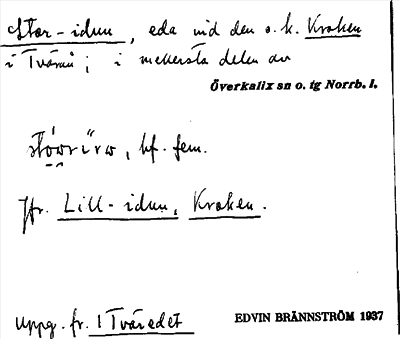 Stor-idun, eda vid den s.k. Kroken
i Tvärån; i mellersta delen av
Överkalix sn o. tg Norrb. l.
bf. fem.
Jfr. Lill-idun, Kroken.
uppg. fr. 1 Tväredet
EDVIN BRÄNNSTRÖM 1937